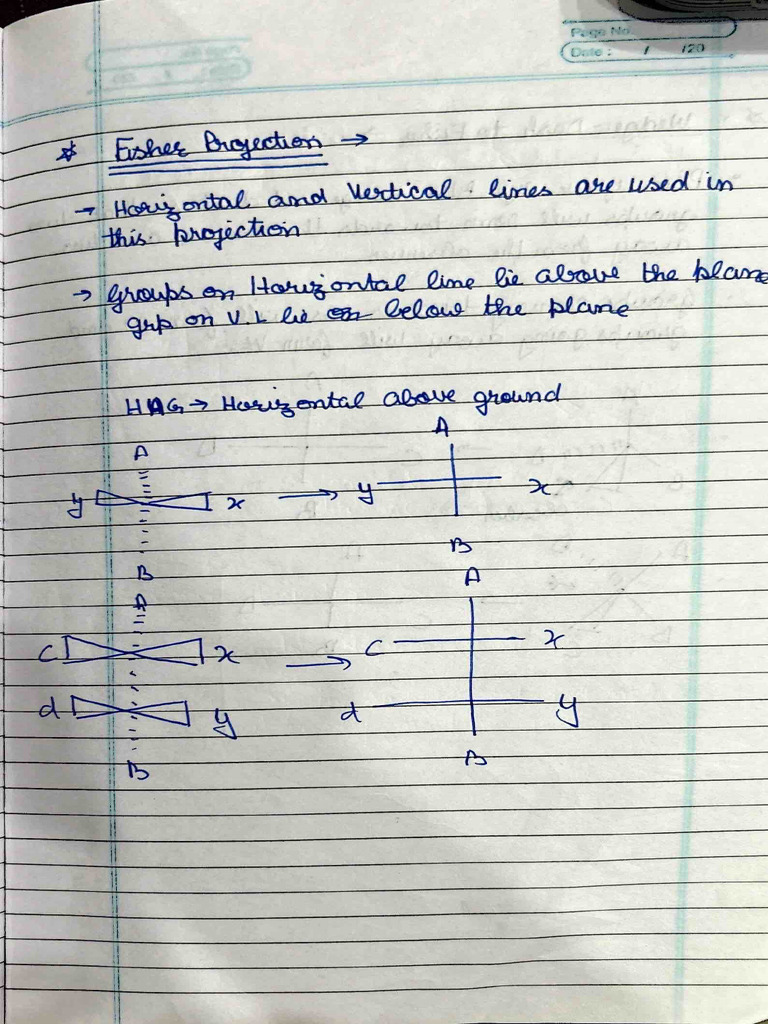 Page No.
Date : / /20
* Fisher Projection →
→ Horizontal and Vertical lines are used in
this projection
→ Groups on Horizontal line lie above the plane
grp on V.L lie below the plane
HAG → Horizontal above ground
A A
y x → y x
B B
A A
c x → c x
d y d y
B B